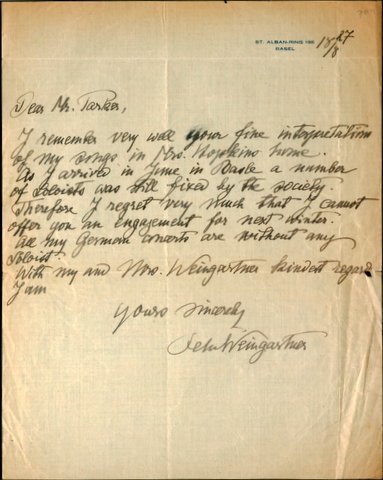 ST. ALBAN-RING 186
BASEL
18/8 27
Dear Mr. Parker,
I remember very well your fine interpretation
of my songs in Mrs. Hopkins home.
As I arrived in June in Basle a number
of soloists was still fixed by the society.
Therefore I regret very much that I cannot
offer you an engagement for next winter.
All my German concerts are without any
soloist.
With my and Mrs. Weingartner kindest regards
I am
yours sincerely
Felix Weingartner